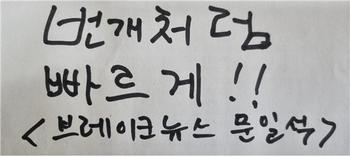 번개처럼
빠르게!!
<브레이크뉴스 문일석>